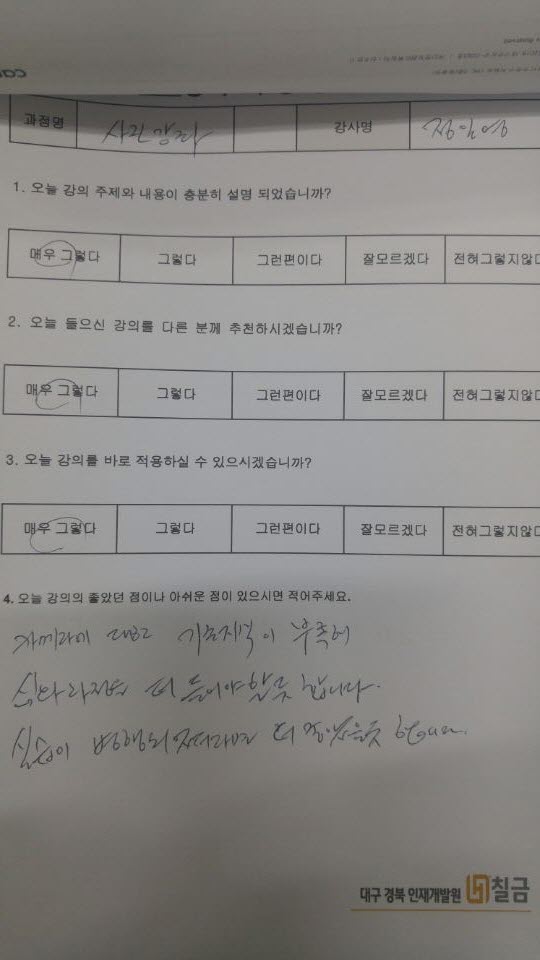 과정명 사진강좌 강사명
1. 오늘 강의 주제와 내용이 충분히 설명 되었습니까?
매우 그렇다 그렇다 그런편이다 잘모르겠다 전혀그렇지않다
2. 오늘 들으신 강의를 다른 분께 추천하시겠습니까?
매우 그렇다 그렇다 그런편이다 잘모르겠다 전혀그렇지않다
3. 오늘 강의를 바로 적용하실 수 있으시겠습니까?
매우 그렇다 그렇다 그런편이다 잘모르겠다 전혀그렇지않다
4. 오늘 강의의 좋았던 점이나 아쉬운 점이 있으시면 적어주세요.
카메라에 대한 기본지식이 부족해
더 들어야 할듯 합니다.
실습이 병행되었더라면 더 좋았을듯 합니다.
대구 경북 인재개발원 칠금